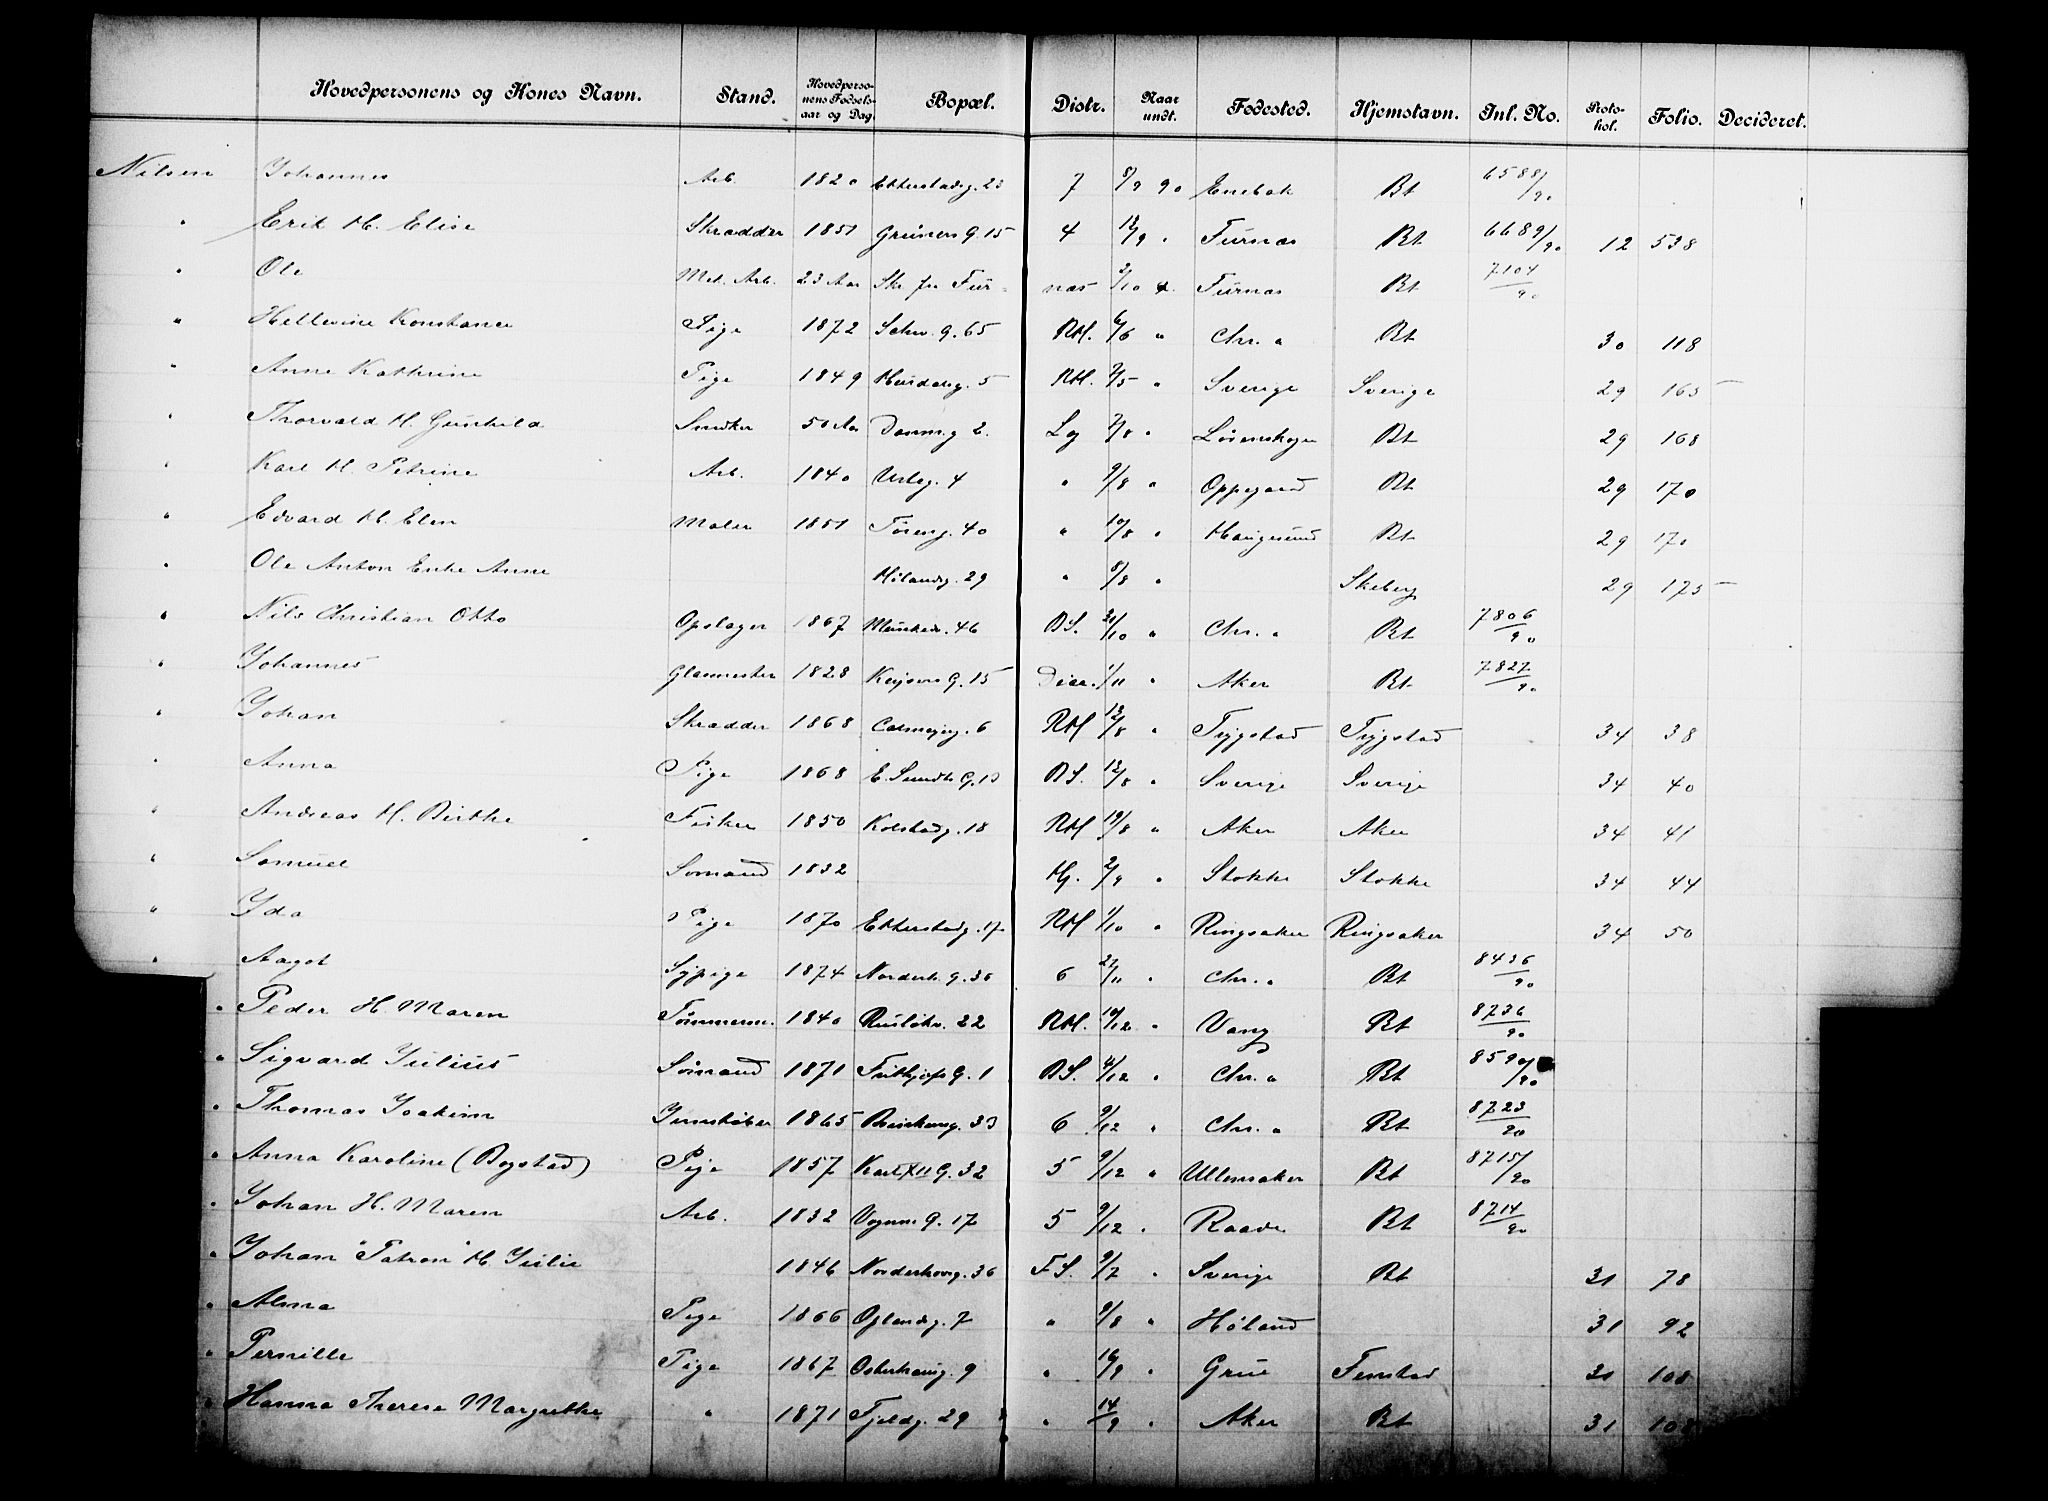 Hovedpersonens og Kones Navn. Stand. Hovedpersonens Fødselsaar og Dag. Bopæl. Distr. Naar undt. Fødested. Hjemstavn. Inl. No. Protokol. Folio. Decideret.
Nilsen Johannes Arb. 1820 Etterstadg. 23 7 8/9 90 Enebak Bt 6588/90
" Erik H. Elise Skrædder 1851 Grüners G. 15 4 12/9 " Furnæs Bt 6689/90 12 538
" Ole Mek. Arb. 23 Aar Skr. fra Furnæs 2/10 Furnæs Bt 7104/90
" Hellevine Konstance Pige 1872 Schw. g. 65 RM. 6/6 " Chr. a Bt 30 118
" Anne Kathrine Pige 1849 Hurdalsg. 5 RM. 2/5 " Sverige Sverige 29 165 –
" Thorvald H. Gunhild Snedker 50 Aar Danm.g 2. Lg 7/8 " Løienskogen Bt 29 168
" Karl H. Petrine Arb. 1840 Urteg. 4 " 9/8 " Oppegaard Bt 29 170
" Edvard H. Elen Maler 1851 Tøieng. 40 " 10/8 " Haugesund Bt 29 170
" Ole Anton Enke Anne Hølandsg. 29 " 8/8 " Skeberg 29 175 –
" Nils Christian Otto Opslager 1867 Munkedv. 46 BS. 30/10 " Chr. a Bt 7806/90
" Johannes Glasmester 1828 Keysers G. 15 Diac. 1/11 " Aker Bt 7827/90
" Johan Skrædder 1868 Calmeyerg. 6 RM 12/8 " Trygstad Trygstad 34 38
" Anna Pige 1868 E. Sundts G. BS. 12/8 " Sverige Sverige 34 40
" Andreas H. Birthe Fisker 1850 Kolstadg. 18 RM 19/8 " Aker Aker 34 41
" Samuel Sømand 1832 Hj. 2/9 " Stokke Stokke 34 44
" Ida Pige 1870 Etterstadg. 17 RM 1/10 " Ringsaker Ringsaker 34 50
" Aagot Sypige 1874 Norderh. G. 36 6 27/11 " Chr. a Bt 8436/90
" Peder H. Maren Tømmerm. 1840 Rusløkv. 22 RM. 10/12 " Vang Bt 8736/90
" Sigvard Julius Sømand 1871 Frithjofs G. 1 BS. 4/12 " Chr. a Bt 8590/90
" Thomas Joakim Jernstøber 1865 33 6 9/12 " Chr. a Bt 8723/90
" Anna Karoline (Bogstad) Pige 1857 Karl XII G. 32 5 9/12 " Ullensaker Bt 8715/90
" Johan H. Maren Arb. 1832 Vognm. G. 17 5 9/12 " Raade Bt 8714/90
" Johan "Patron" H. Julie 1846 Norderhovsg. 36 FS. 9/7 " Sverige Bt 31 78
" Alma Pige 1866 Oplandsg. 7 " 9/8 " Høland 31 92
" Pernille Pige 1867 Osterhausg. 9 " 16/9 " Grue Fenstad 31 108
" Hanna Therese Margrethe " 1871 Fjeldg. 29 " 14/9 " Aker Bt 31 108